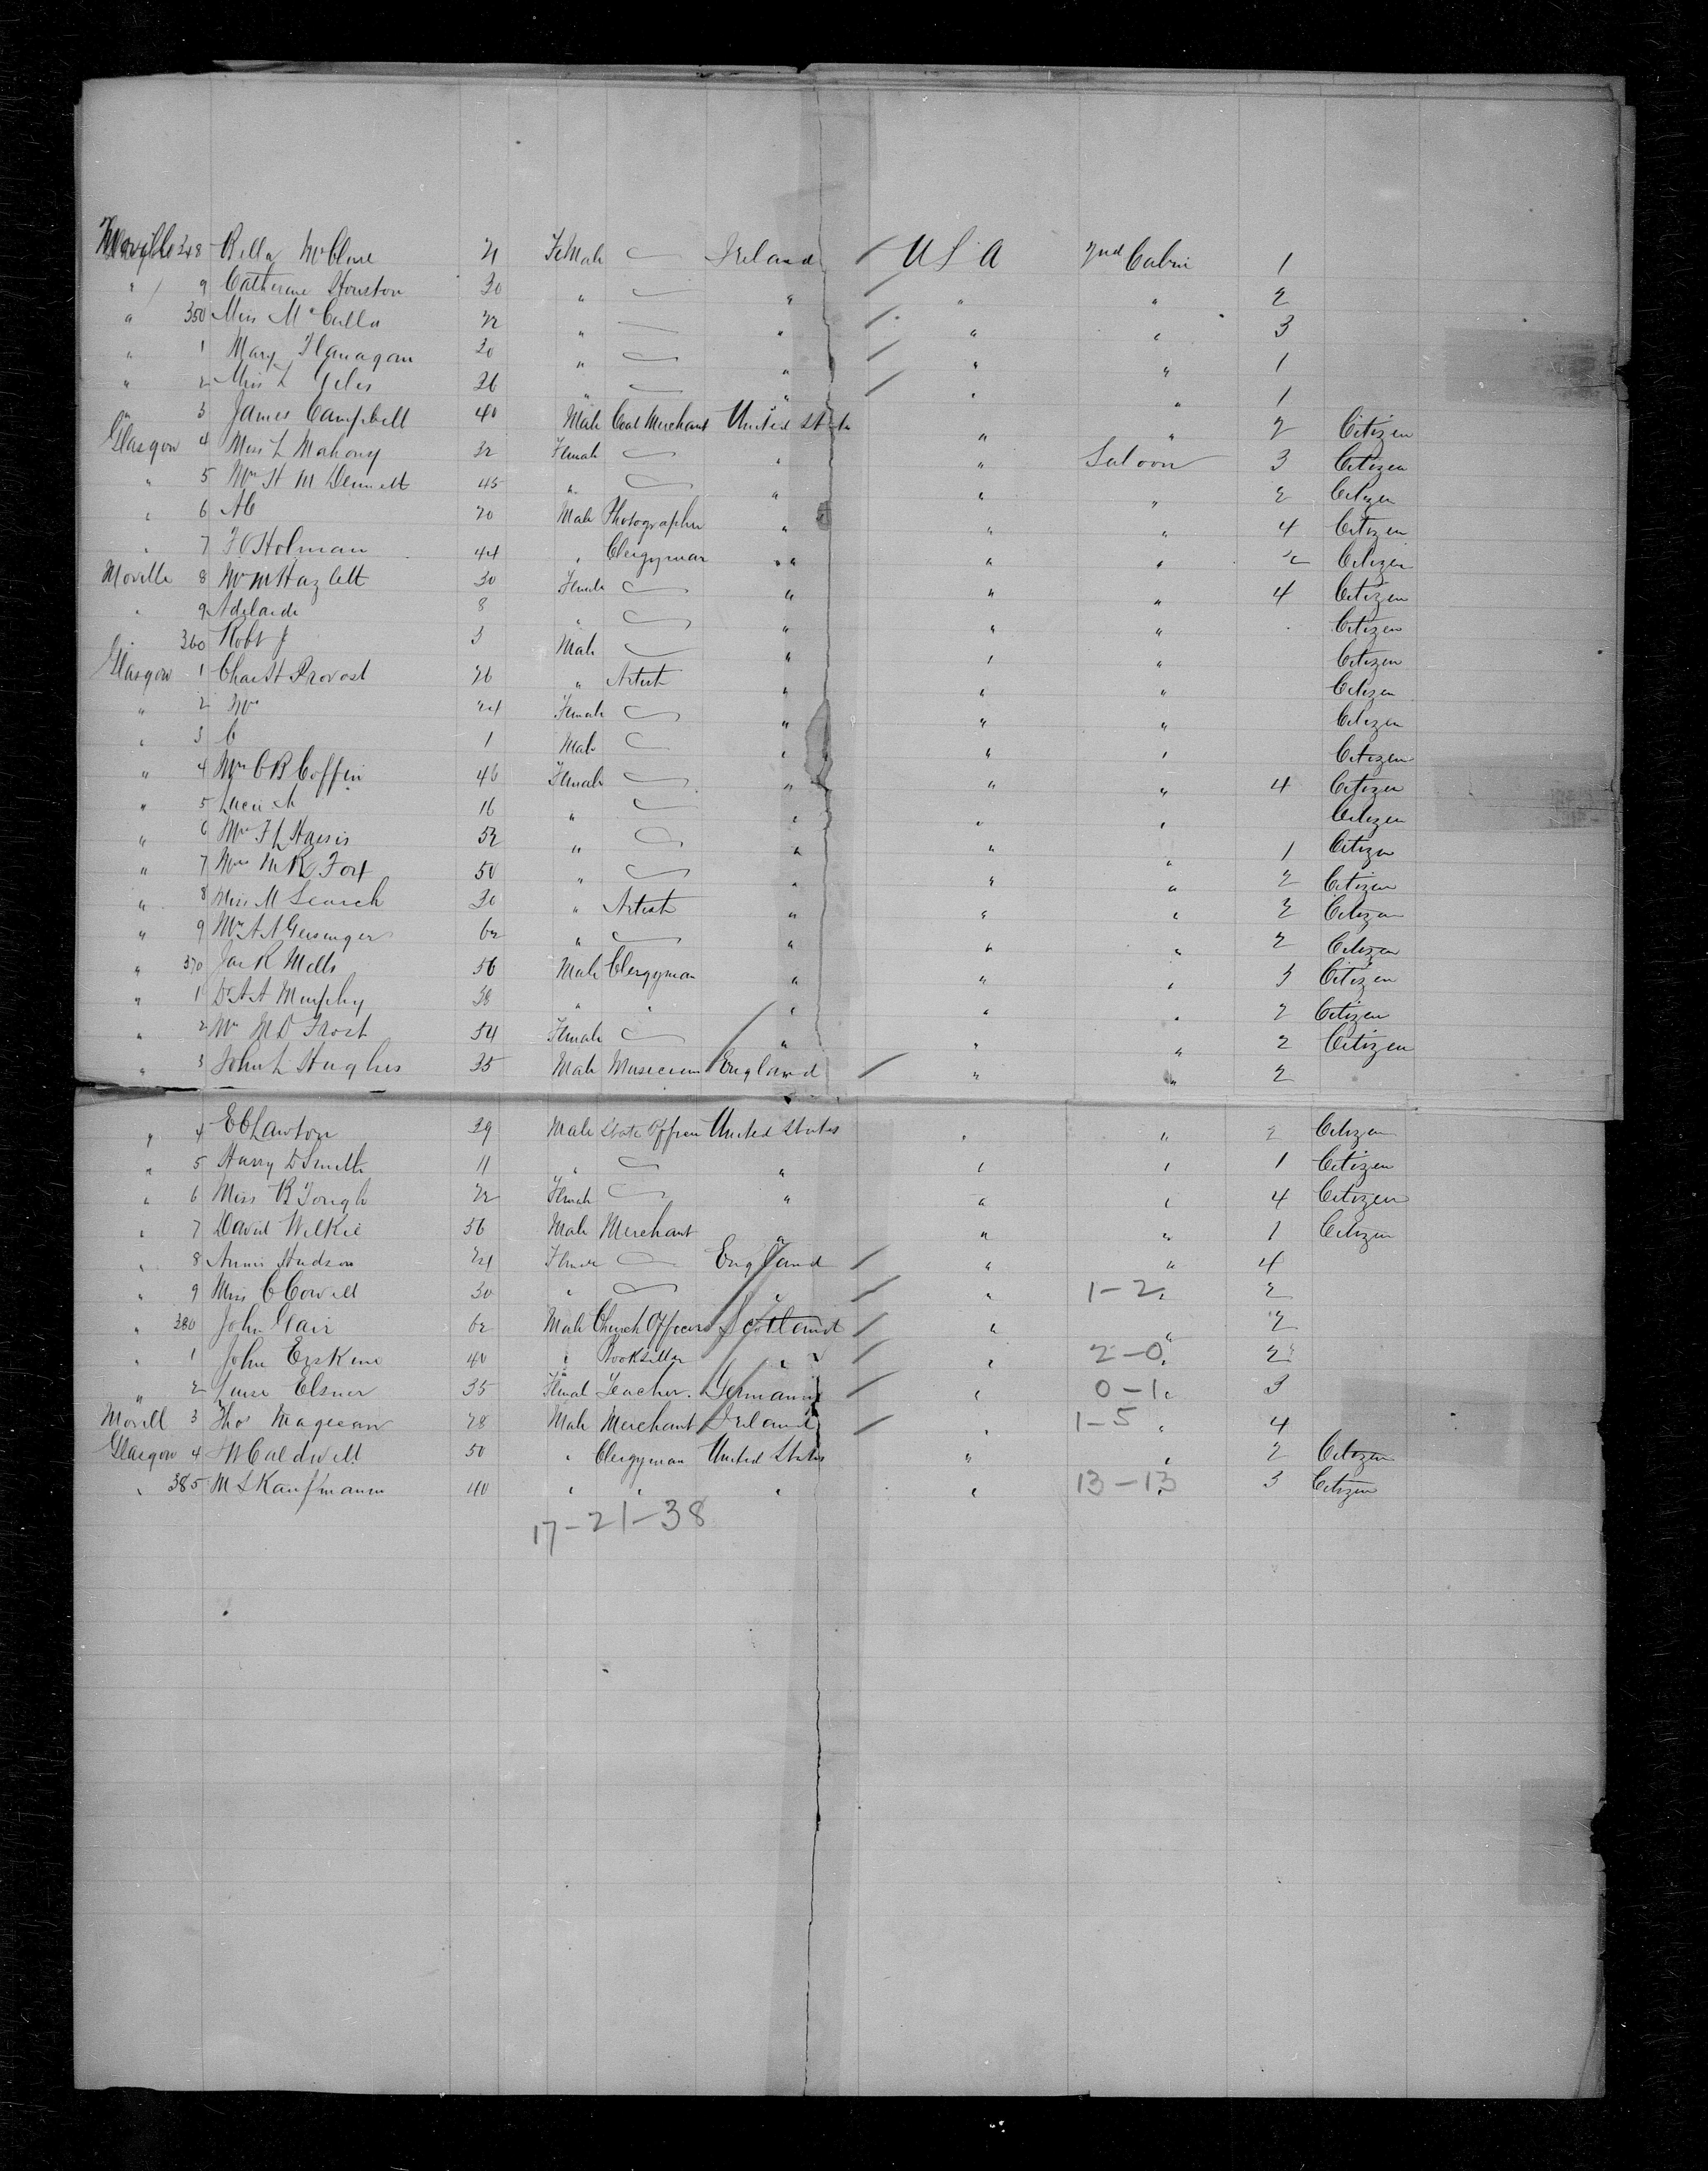 Moville 348 Bella McClure 21 Female Ireland / U S A 2nd Cabin 1
" 9 Catherine Houston 30 " " / " " 2
" 350 Miss McCulla 22 " " / " " 3
" 1 Mary Flanagan 30 " " / " " 1
" 2 Miss L Giles 26 " " / " " 1
" 3 James Campbell 40 Male Coal Merchant United States " " 2 Citizen
Glasgow 4 Miss L Mahony 32 Female " " Saloon 3 Citizen
" 5 Mrs H M Dennett 45 " " " " 2 Citizen
" 6 AC 20 Male Photographer " " " 4 Citizen
" 7 F C Holman 44 " Clergyman " " " 2 Citizen
Moville 8 Hazlett 30 Female " " " 4 Citizen
" 9 Adelaide 8 " " " " Citizen
360 Robt J 3 Male " " " Citizen
Glasgow 1 Chas H Provost 26 " Artist " " " Citizen
" 2 Mrs 24 Female " " " Citizen
" 3 C 1 Male " " " Citizen
" 4 Mrs C R Coffin 46 Female " " " 4 Citizen
" 5 16 " " " " Citizen
" 6 Mrs F L 52 " " " " 1 Citizen
" 7 Mrs M R Fort 50 " " " " 2 Citizen
" 8 Miss M Search 30 " Artist " " " 2 Citizen
" 9 Mrs A A Geisenger 62 " " " " 2 Citizen
" 370 Jas R Mills 56 Male Clergyman " " " 3 Citizen
" 1 Dr A A Murphy 38 " " " " " 2 Citizen
" 2 Mrs M D Frost 54 Female " " " 2 Citizen
" 3 John L Hughes 35 Male Musician England / " " 2
" 4 E C Lawton 39 Male State Officer United States " " 2 Citizen
" 5 Harry D Smith 11 " " " " 1 Citizen
" 6 Miss R Tough 22 Female " " " 4 Citizen
" 7 David Wilkie 56 Male Merchant " " " 1 Citizen
" 8 Annie Hudson 24 Female England / " " 4
" 9 Miss C Cowell 30 " " / " 1-2 " 2
" 380 John Gair 62 Male Church Officer Scotland / " " 2
" 1 John Erskine 40 " Bookseller " / " 2-0 " 2
" 2 Luise Elsner 35 Female Teacher Germany / " 0-1 " 3
Movill 3 Thos Mageean 28 Male Merchant Ireland / " 1-5 " 4
Glasgow 4 Caldwell 50 " Clergyman United States " " 2 Citizen
" 385 M S Kaufmann 40 " " " " 13-13 " 3 Citizen
17-21-38